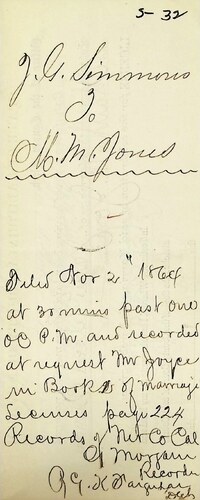 5-32
J. G. Simmons
To
M. M. Jones
Filed Nov 2" 1864
at 30 mins past one
O'C P.M. and recorded
at request Mr Joyce
in Book of Marriage
Licenses page 224
Records of Nt Co Cal
Morgan
Recorder
By G. K. Farquhar